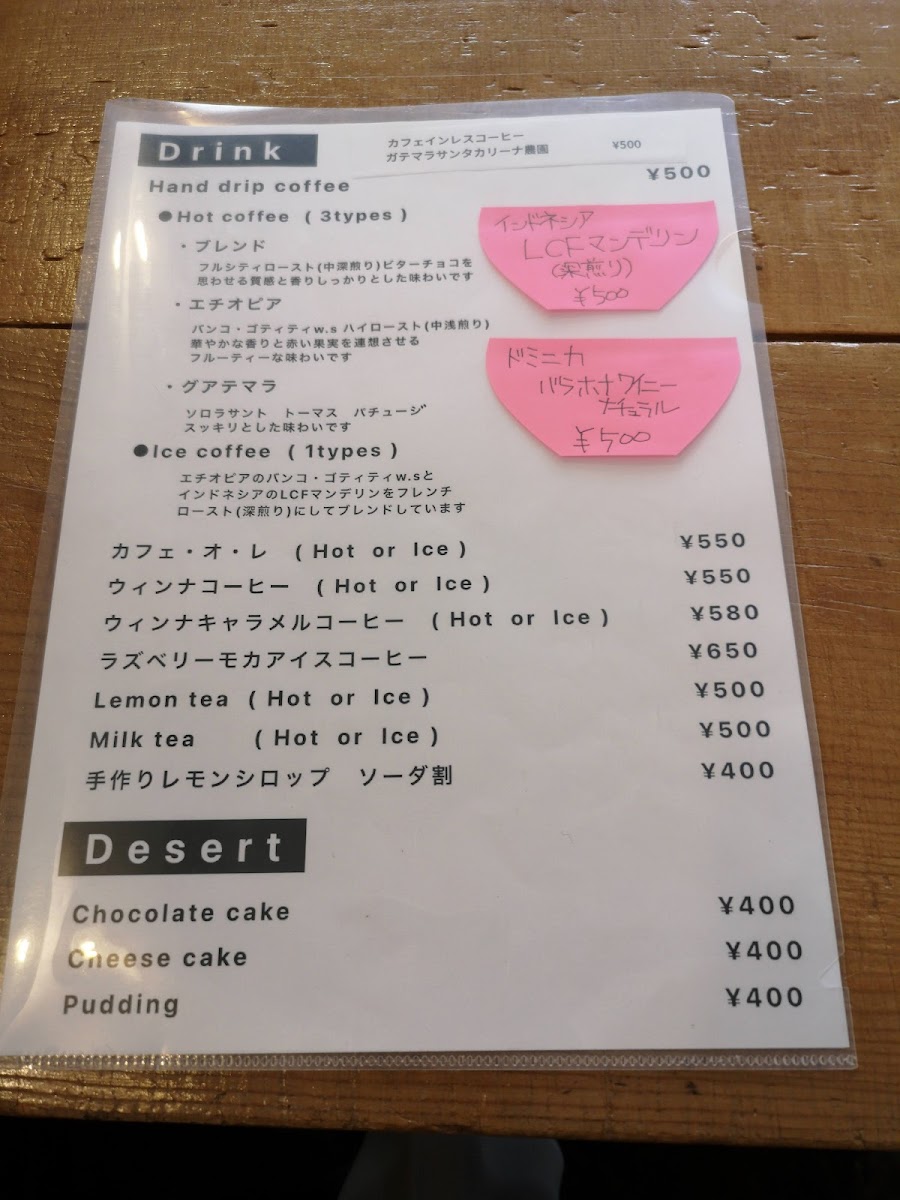 Drink
カフェインレスコーヒー
ガテマラサンタカリーナ農園 ¥500
Hand drip coffee ¥500
●Hot coffee ( 3types )
・ブレンド
フルシティロースト(中深煎り)ビターチョコを
思わせる質感と香りしっかりとした味わいです
・エチオピア
バンコ・ゴティティw.s ハイロースト(中浅煎り)
華やかな香りと赤い果実を連想させる
フルーティーな味わいです
・グアテマラ
ソロラサント トーマス パチュージ
スッキリとした味わいです
インドネシア
LCFマンデリン
(深煎り)
¥500
ドミニカ
バラホナワイニー
ナチュラル
¥500
●Ice coffee ( 1types )
エチオピアのバンコ・ゴティティw.sと
インドネシアのLCFマンデリンをフレンチ
ロースト(深煎り)にしてブレンドしています
カフェ・オ・レ ( Hot or Ice ) ¥550
ウィンナコーヒー ( Hot or Ice ) ¥550
ウィンナキャラメルコーヒー ( Hot or Ice ) ¥580
ラズベリーモカアイスコーヒー ¥650
Lemon tea ( Hot or Ice ) ¥500
Milk tea ( Hot or Ice ) ¥500
手作りレモンシロップ ソーダ割 ¥400
Desert
Chocolate cake ¥400
Cheese cake ¥400
Pudding ¥400